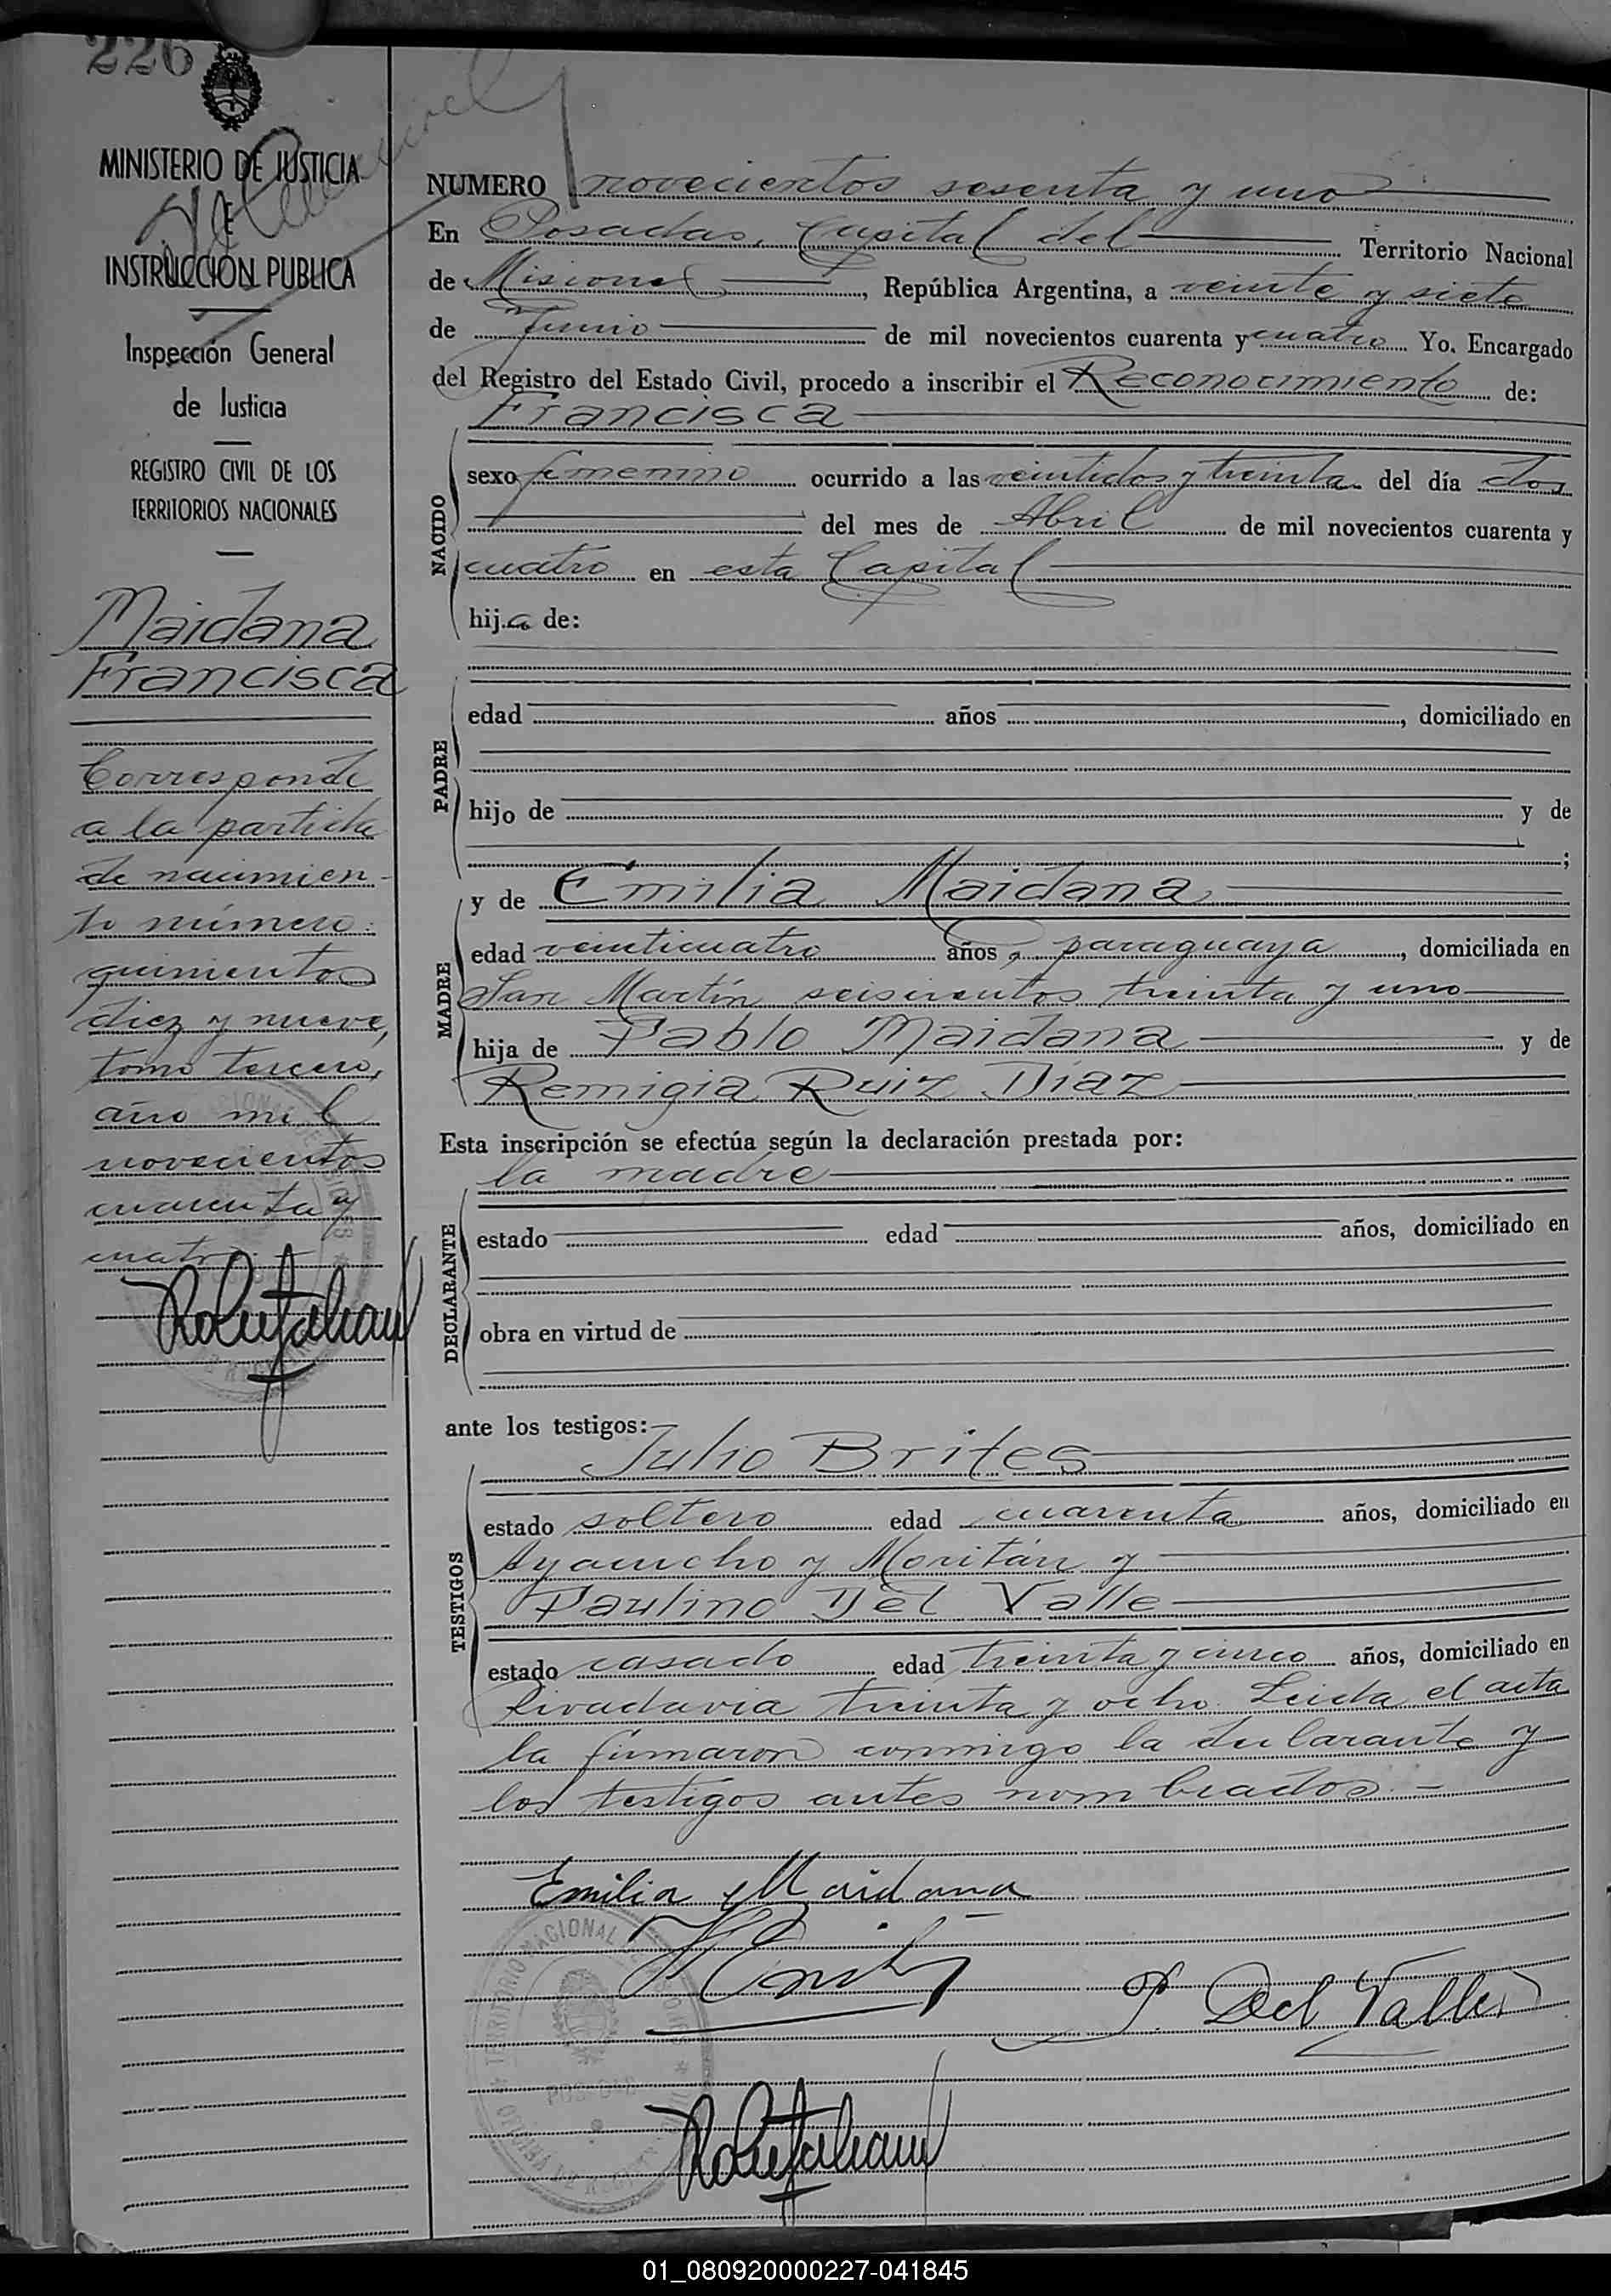 226
MINISTERIO DE JUSTICIA
E
INSTRUCCIÓN PUBLICA
Inspección General
de Justicia
REGISTRO CIVIL DE LOS
TERRITORIOS NACIONALES
Maidana
Francisca
Corresponde
a la partida
de nacimien-
to número:
quinientos
diez y nueve,
tomo tercero,
año mil
novecientos
cuarenta y
cuatro.-
NUMERO novecientos sesenta y uno
En Posadas, Capital del Territorio Nacional
de Misiones, República Argentina, a veinte y siete
de Junio de mil novecientos cuarenta y cuatro Yo. Encargado
del Registro del Estado Civil, procedo a inscribir el Reconocimiento de:
Francisca
NACIDO
sexo femenino ocurrido a las veintidos y treinta del día dos
del mes de Abril de mil novecientos cuarenta y
cuatro en esta Capital
hija de:
PADRE
edad años, domiciliado en
hijo de y de
;
MADRE
y de Emilia Maidana
edad veinticuatro años, paraguaya, domiciliada en
San Martín seiscientos treinta y uno
hija de Pablo Maidana y de
Remigia Ruiz Díaz
Esta inscripción se efectúa según la declaración prestada por:
la madre
DECLARANTE
estado edad años, domiciliado en
obra en virtud de
ante los testigos:
Julio Brites
TESTIGOS
estado soltero edad cuarenta años, domiciliado en
Ayacucho y Moritán y
Paulino Del Valle
estado casado edad treinta y cinco años, domiciliado en
Rivadavia treinta y ocho. Leida el acta
la firmaron conmigo la declarante y
los testigos antes nombrados.-
Emilia Maidana
P. Del Valle
01_080920000227-041845